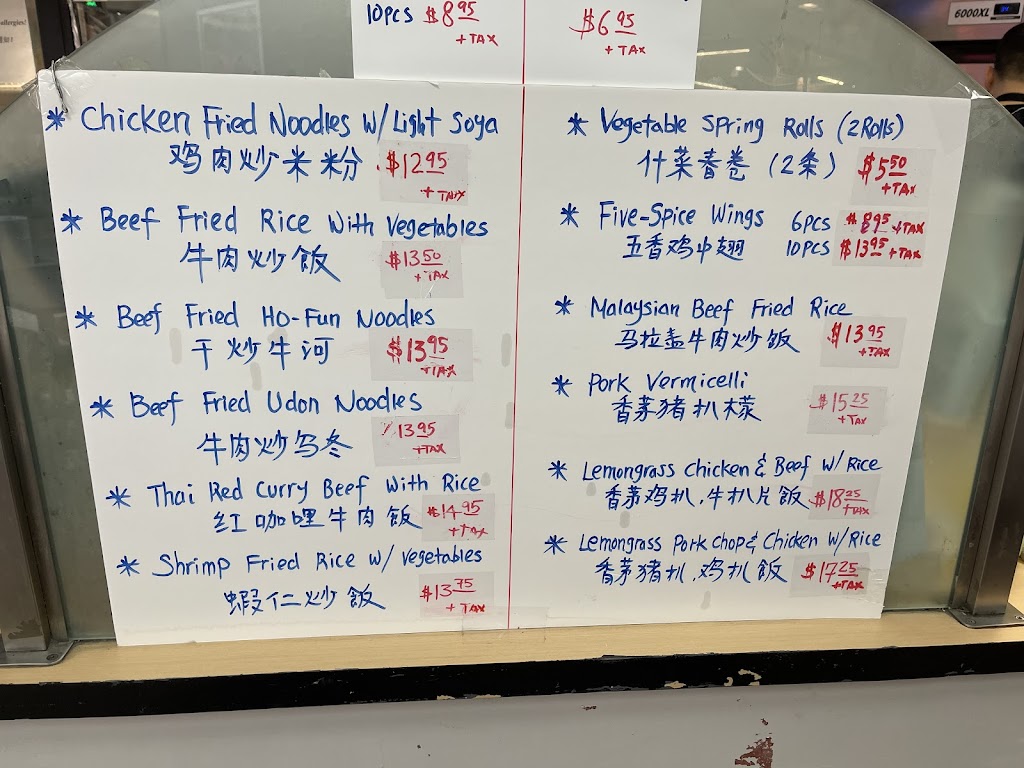 allergies!
10PCS $8.95
+TAX
$6.95
+TAX
6000XL
* Chicken Fried Noodles w/Light Soya
鸡肉炒米粉 $12.95
+TAX
* Beef Fried Rice with Vegetables
牛肉炒飯 $13.50
+TAX
* Beef Fried Ho-Fun Noodles
干炒牛河 $13.95
+TAX
* Beef Fried Udon Noodles
牛肉炒乌冬 13.95
+TAX
* Thai Red Curry Beef With Rice
红咖哩牛肉飯 $14.95
+TAX
* Shrimp Fried Rice w/ Vegetables
蝦仁炒飯 $13.75
+TAX
* Vegetable Spring Rolls (2Rolls)
什菜春卷 (2条) $5.50
+TAX
* Five-Spice Wings 6PCS $8.95 +TAX
五香鸡中翅 10PCS $13.95 +TAX
* Malaysian Beef Fried Rice
马拉盏牛肉炒飯 $13.95
+TAX
* Pork Vermicelli
香茅猪扒檬 $15.25
+TAX
* Lemongrass Chicken & Beef W/ Rice
香茅鸡扒、牛扒片飯 $18.25
+TAX
* Lemongrass Pork chop & Chicken W/Rice
香茅猪扒、鸡扒飯 $17.25
+TAX